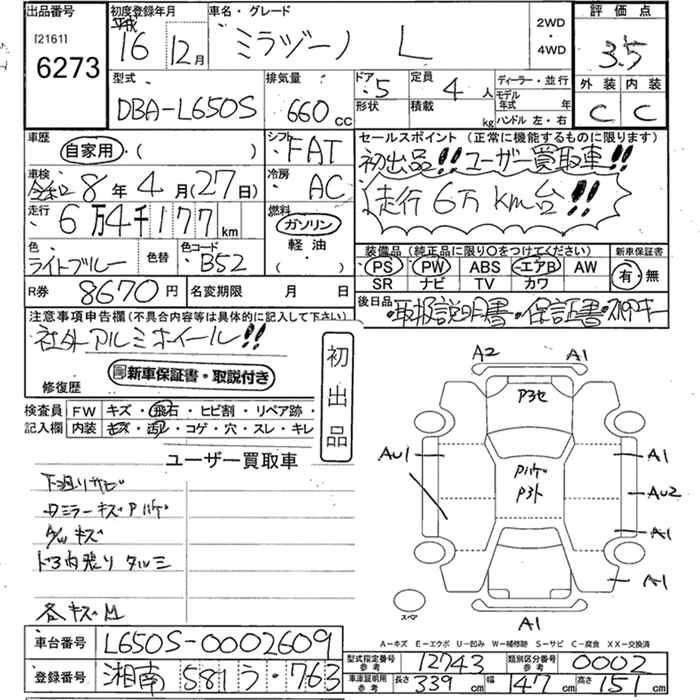 出品番号
[2161]
6273
初度登録年月
平成
16 12月
車名・グレード
ミラジーノ L
2WD
・
4WD
評価点
3.5
外装 内装
C C
型式
DBA-L650S
排気量
660 cc
ドア
5
形状
定員
4 人
積載
kg
ディーラー・並行
モデル
年式 年
ハンドル 左・右
車歴
自家用・( )
シフト
FAT
車検
令和 8年 4月(27日)
冷房
AC
走行
6万4千177km
燃料
ガソリン
軽油
( )
色
ライトブルー
色替
色コード
B52
R券 8670円
名変期限 月 日
セールスポイント(正常に機能するものに限ります)
初出品!!ユーザー買取車!!
走行6万km台!!
装備品(純正品に限り○をつけてください)
PS PW ABS エアB AW
SR ナビ TV カワ
新車保証書
有・無
後日品
・取扱説明書・保証書・スペアキー
注意事項申告欄(不具合内容等は具体的に記入して下さい)
社外アルミホイール!!
新車保証書・取説付き
修復歴
初出品
検査員 FW キズ・飛石・ヒビ割・リペア跡・
記入欄 内装 キズ・汚レ・コゲ・穴・スレ・キレ
ユーザー買取車
下廻リサビ
ミラーキズPハゲ
キズ
ドラ内張り タルミ
各キズ凹
A2 A1
Pヨセ
AU1
A1
Pハゲ
Pヨト
AU2
A1
A1
スペア
A1
A-キズ E-エクボ U-凹み W-補修跡 S-サビ C-腐食 XX-交換済
車台番号 L650S-0002609
登録番号 湘南 581 う・763
型式指定番号
参考
12743
類別区分番号
参考
0002
車庫証明用
参考
長さ 339 cm 幅 147 cm 高さ 151 cm